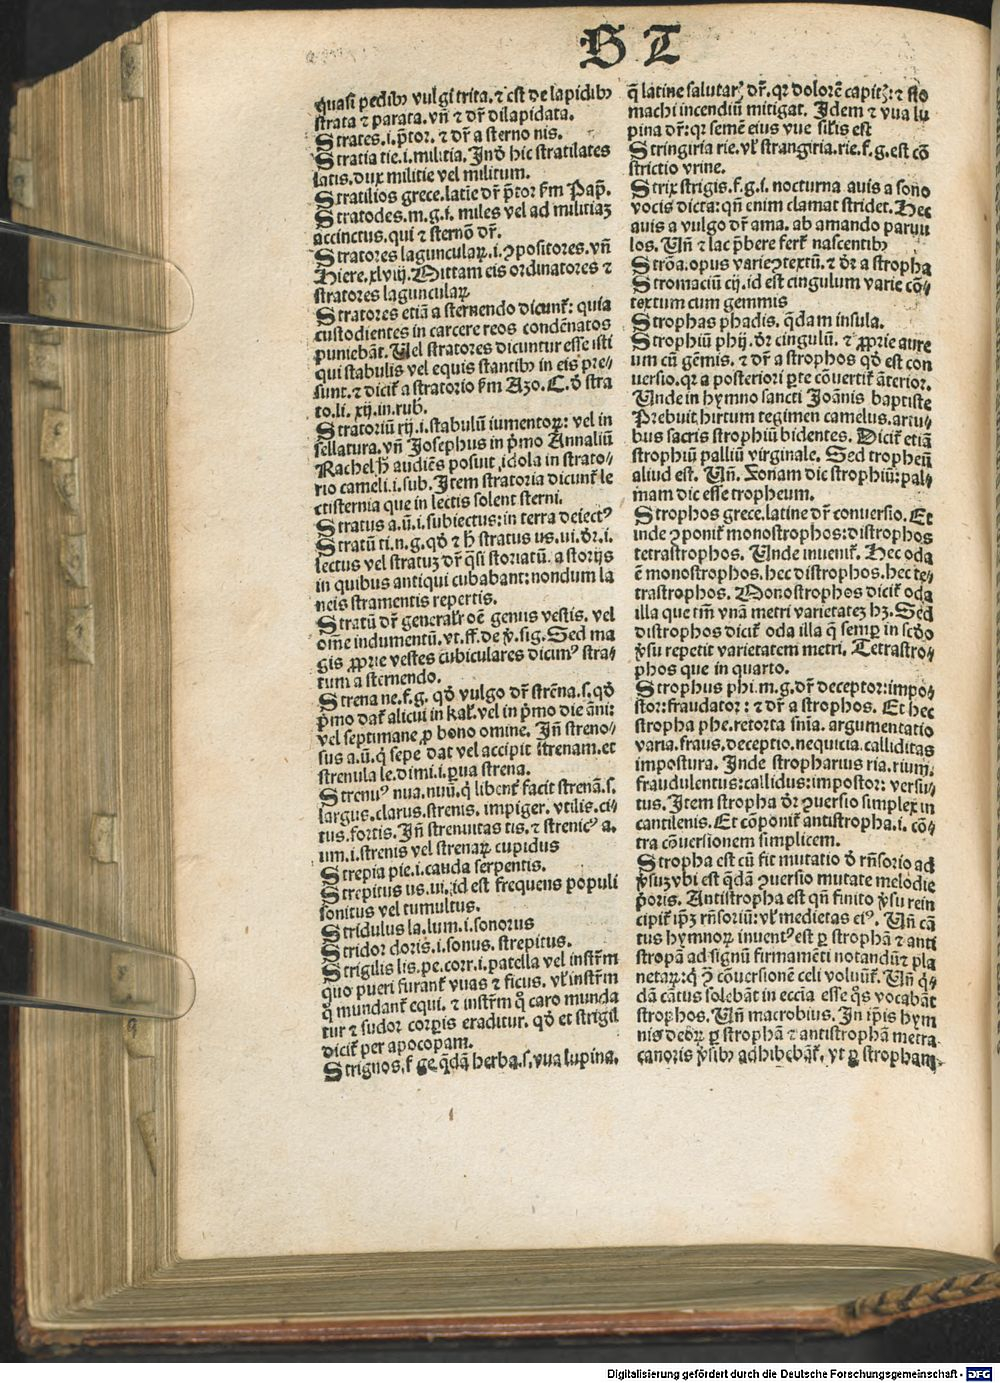 S T
quasi pedibꝰ vulgi trita. ⁊ est de lapidibꝰ
strata ⁊ parata. vñ ⁊ dr̄ dilapidata.
Strates .i. p̄tor. ⁊ dr̄ a sterno nis.
Stratia tie .i. militia. Inð hic stratilates
latis. dux militie vel militum.
Stratilios grece. latie dr̄ p̄tor ẜm Pap̄.
Stratodes. m. g. i. miles vel ad militiaꝫ
accinctus. qui ⁊ sternō dr̄.
Stratores laguncularꝝ .i. ꝯpositores. vñ
Hiere. xlviij. Mittam eis ordinatores ⁊
stratores laguncularꝝ
Stratores etiā a sternendo dicunt᷑: quia
custodientes in carcere reos condēnatos
puniebāt. Uel stratores dicuntur esse isti
qui stabulis vel equis stantibꝰ in eis pre⸗
sunt. ⁊ dicit᷑ a stratorio ẜm Azo. C. ð stra
to. li. xij. in. rub̄.
Stratoriū rij. i. stabulū iumentorꝝ: vel in
sellatura. vñ Josephus in p̄mo Annaliū
Rachel ħ audiēs posuit idola in strato⸗
rio cameli .i. sub. Item stratoria dicunt᷑ le
ctisternia que in lectis solent sterni.
Stratus a. ū. i. subiectus: in terra deiectꝰ
Stratū ti. n. g. qð ⁊ ħ stratus us. ui. ðr. i.
lectus vel stratuꝫ dr̄ q̄si storiatū. a storijs
in quibus antiqui cubabant: nondum la
neis stramentis repertis.
Stratū dr̄ general'r oē genus vestis. vel
om̄e indumentū. vt. ff. de ꝟ. sig. Sed ma
gis ꝓprie vestes cubiculares dicunꝰ stra⸗
tum a sternendo.
Strena ne. f. g. qð vulgo dr̄ strēna. s. qð
p̄mo dat᷑ alicui in kal᷑. vel in p̄mo die āni:
vel septimane ꝑ bono omine. Inñ streno⸗
sus a. ū. q̇ sepe dat vel accipit strenam. et
strenula le. dimi. i. ꝑua strena.
Strenuꝰ nua. nuū. q̇ libent᷑ facit strenā. s.
largus. clarus. strenis. impiger. vtilis. ci⸗
tus. fortis. Inñ strenuitas tis. ⁊ strenicꝰ a.
um. i. strenis vel strenarꝝ cupidus
Strepia pie. i. cauda serpentis.
Strepitus us. ui. id est frequens populi
sonitus vel tumultus.
Stridulus la. lum. i. sonorus
Stridor doris. i. sonus. strepitus.
Strigilis lis. pe. corr. i. patella vel instr̄m
quo pueri furant᷑ vuas ⁊ ficus. vl' instr̄m
q̊ mundant᷑ equi. ⁊ instr̄m q̊ caro munda
tur ⁊ sudor corꝑis eraditur. qð et strigil
dicit᷑ per apocopam.
Strignos. f. ge. q̄dā herba. s. vua lupina.
q̄ latine salutar᷑ dr̄. qꝛ dolorē capit᷑: ⁊ sto
machi incendiū mitigat. Idem ⁊ vua lu
pina dr̄: qꝛ semē eius vue sil'is est
Stringiria rie. vl' strangiria. rie. f. g. est cō
strictio vrine.
Strix strigis. f. g. i. nocturna auis a sono
vocis dicta: qñ enim clamat stridet. Hec
auis a vulgo dr̄ ama. ab amando paruu
los. Uñ ⁊ lac p̄bere fert᷑ nascentibꝰ
Strōa. opus varie ꝯtextū. ⁊ ðr a stropha
Stromaciū cij. id est cingulum varie cō⸗
textum cum gemmis
Strophas phadis. q̄dam insula.
Strophiū phij. ðr cingulū. ⁊ ꝓprie aure
um cū gēmis. ⁊ dr̄ a strophos qð est con
uersio. qꝛ a posteriori ꝑte cōuertit᷑ āterior.
Unde in hymno sancti Joānis baptiste
Prebuit hirtum tegimen camelus. artu⸗
bus sacris strophiū bidentes. Dicit᷑ etiā
strophiū palliū virginale. Sed tropheū
aliud est. Uñ. Zonam dic strophiū: pal⸗
mam dic esse tropheum.
Strophos grece. latine dr̄ conuersio. Et
inde ꝯponit᷑ monostrophos: distrophos
tetrastrophos. Unde inuenit᷑. Hec oda
ē monostrophos. hec distrophos. hec te⸗
trastrophos. Monostrophos dicit᷑ oda
illa que tm̄ vnā metri varietateꝫ hꝫ. Sed
distrophos dicit᷑ oda illa q̄ semꝑ in scðo
ꝟsu repetit varietatem metri. Tetrastro⸗
phos que in quarto.
Strophus phi. m. g. dr̄ deceptor: impo⸗
stor: fraudator: ⁊ dr̄ a strophos. Et hec
stropha phe. retorta sñia. argumentatio
varia. fraus. deceptio. nequicia. calliditas
impostura. Inde stropharius ria. rium.
fraudulentus: callidus: impostor: versu⸗
tus. Item stropha ðr ꝯuersio simplex in
cantilenis. Et cōponit᷑ antistropha. i. cō⸗
tra cōuersionem simplicem.
Stropha est cū fit mutatio ð rñsorio ad
ꝟsuꝫ vbi est q̄dā ꝯuersio mutate melodie
ꝑoris. Antistropha est qñ finito ꝟsu rein
cipit᷑ ip̄ꝫ rñsoriū: vl' medietas eiꝰ. Uñ cā
tus hymnorꝝ inuentꝰ est ꝑ strophā ⁊ anti
stropā ad signū firmamēti notandū ⁊ pla
netarꝝ: q̇ ꝑ cōuersionē celi voluūt᷑. Uñ q̄⸗
dā cātus solebāt in eccīa esse q̊s vocabāt
strophos. Uñ macrobius. In ip̄is hym
nis deorꝝ ꝑ strophā ⁊ antistrophā metra
canoris ꝟsibꝰ adhibebāt᷑. vt ꝑ stropham
Digitalisierung gefördert durch die Deutsche Forschungsgemeinschaft - DFG